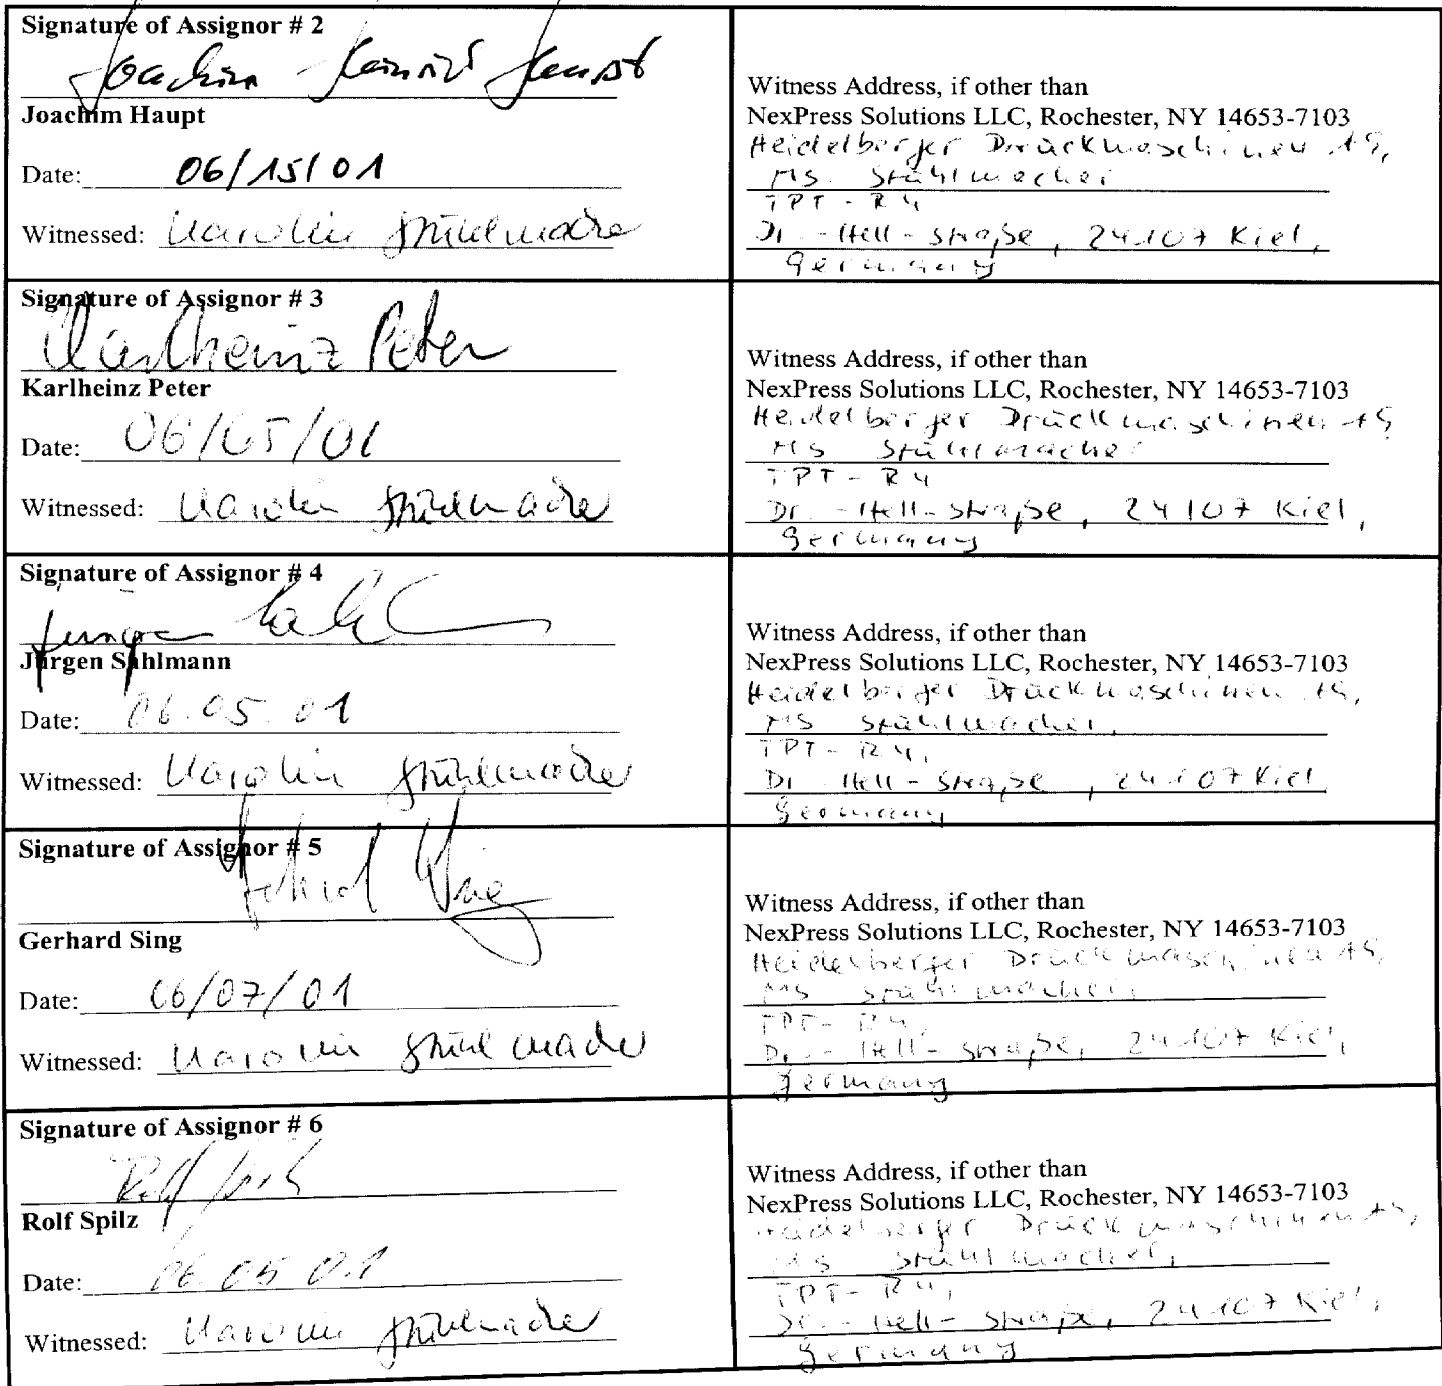 Signature of Assignor # 2
Joachim Heinrich Haupt
Joachim Haupt
Date: 06/15/01
Witnessed: Karolin Stühlmacher
Witness Address, if other than
NexPress Solutions LLC, Rochester, NY 14653-7103
Heidelberger Druckmaschinen AG,
MS Stühlmacher
TPT - R4
Dr. - Hell - Straße, 24107 Kiel,
Germany
Signature of Assignor # 3
Karlheinz Peter
Karlheinz Peter
Date: 06/05/01
Witnessed: Karolin Stühlmacher
Witness Address, if other than
NexPress Solutions LLC, Rochester, NY 14653-7103
Heidelberger Druckmaschinen AG
MS Stühlmacher
TPT - R4
Dr. - Hell - Straße, 24107 Kiel,
Germany
Signature of Assignor # 4
Jürgen
Jürgen Sahlmann
Date: 06.05.01
Witnessed: Karolin Stühlmacher
Witness Address, if other than
NexPress Solutions LLC, Rochester, NY 14653-7103
Heidelberger Druckmaschinen AG,
MS Stühlmacher,
TPT - R4,
Dr. Hell - Straße, 24107 Kiel
Germany
Signature of Assignor # 5
Gerhard Sing
Gerhard Sing
Date: 06/07/01
Witnessed: Karolin Stühlmacher
Witness Address, if other than
NexPress Solutions LLC, Rochester, NY 14653-7103
Heidelberger Druckmaschinen AG,
MS Stühlmacher,
TPT - R4,
Dr. - Hell - Straße, 24107 Kiel,
Germany
Signature of Assignor # 6
Rolf Spilz
Rolf Spilz
Date: 06.05.01
Witnessed: Karolin Stühlmacher
Witness Address, if other than
NexPress Solutions LLC, Rochester, NY 14653-7103
Heidelberger Druckmaschinen AG,
MS Stühlmacher,
TPT - R4,
Dr. - Hell - Straße, 24107 Kiel,
Germany